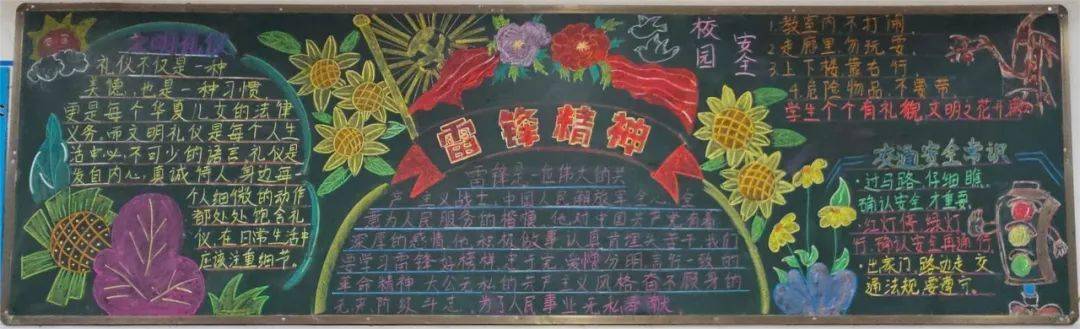 文明礼仪
礼仪不仅是一种
美德,也是一种习惯
更是每个华夏儿女的法律
义务,而文明礼仪是每个人生
活中必不可少的语言,礼仪是
发自内心,真诚待人,身边每一
个人细微的动作
都处处饱含礼
仪,在日常生活中
应该注重细节。
雷锋精神
雷锋是一位伟大的共
产主义战士,中国人民解放军全心全
意为人民服务的楷模,他对中国共产党有着
深厚的感情,他积极做事认真肯埋头苦干,我们
要学习雷锋好榜样,忠于党,爱憎分明,言行一致的
革命精神,大公无私的共产主义风格,奋不顾身的
无产阶级斗志,为了人民事业无私奉献。
校园
安全
1.教室内不打闹,
2.走廊里勿玩耍,
3.上下楼靠右行,
4.危险物品不携带
学生个个有礼貌,文明之花开满
交通安全常识
·过马路仔细瞧
确认安全才重要。
·红灯停绿灯
行,确认安全再通行
·出家门,路边走,交
通法规要遵守。